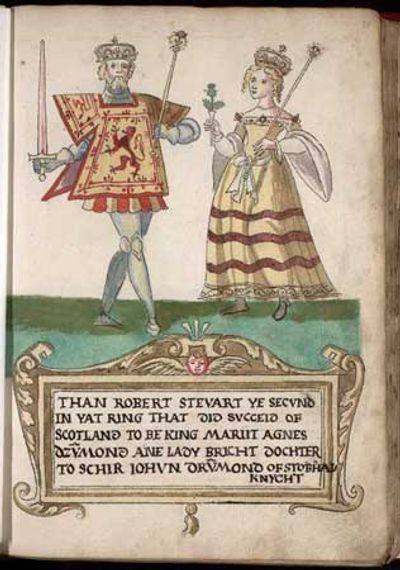 THAN ROBERT STEVART YE SECVND
IN YAT RING THAT DID SVCCEID OF
SCOTLAND TO BE KING MARIIT AGNES
DZŸMOND ANE LADY BRICHT DOCHTER
TO SCHIR IOHVN DRVMOND OF STOBHAL
KNYCHT